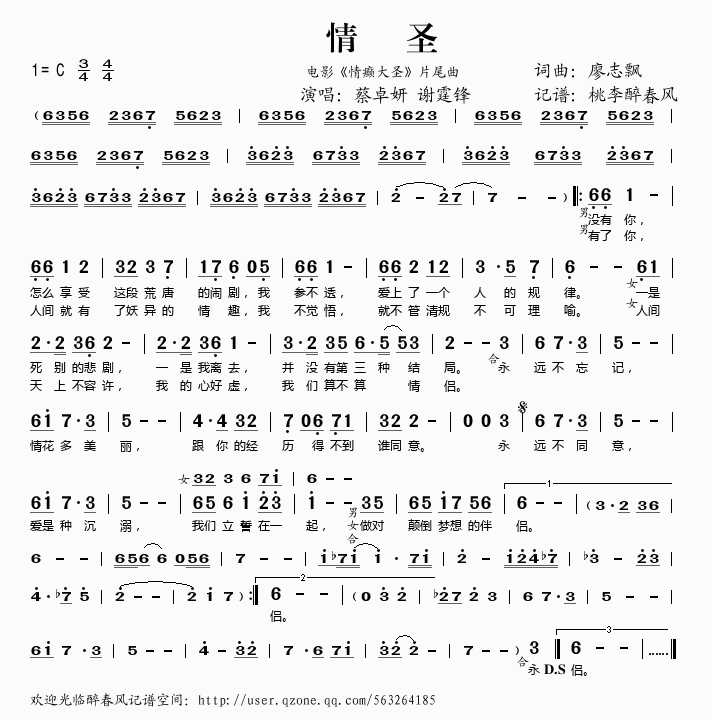 情 圣
1= C 3/4 4/4
电影《情癫大圣》片尾曲
词曲：廖志飘
演唱：蔡卓妍 谢霆锋
记谱：桃李醉春风
（6356 2367 5623 | 6356 2367 5623 | 6356 2367 5623 |
6356 2367 5623 | 3623 6733 2367 | 3623 6733 2367 |
3623 6733 2367 | 3623 6733 2367 | 2 - 27 | 7 - - ）‖: 66 1 - |
男 没有 你，
男 有了 你，
66 1 2 | 32 3 7 | 17 6 05 | 66 1 - | 66 2 12 | 3 · 5 7 | 6 - 61 |
怎么 享 受 这段 荒 唐 的闹 剧，我 参不 透， 爱上 了 一个 人 的 规 律。 女 一是
人间 就 有 了妖 异 的 情 趣，我 不觉 悟， 就不 管 清规 不 可 理 喻。 女 人间
2·2 36 2 - | 2·2 36 1 - | 2·2 32 35 6·5 53 | 2 - - 3 | 6 7·3 | 5 - - |
死 别 的悲 剧， 一 是 我离 去， 并 没 有第 三 种 结 局。 合 永 远 不 忘 记，
天 上 不容 许， 我 的 心好 虚， 我 们 算不 算 情 侣。
61 7·3 | 5 - - | 4·4 32 | 7 06 71 | 32 2 - | 0 0 3 | 6 7·3 | 5 - - |
情花 多 美 丽， 跟 你 的经 历 得 不到 谁同 意。 永 远 不 同 意，
女 32 3 6 71 | 6 - -
61 7·3 | 5 - - | 65 6 1 23 | 1 - 35 | 65 17 56 | 6 - - | （3·2 36 |
1
爱是 种 沉 溺， 我们 立 誓 在一 起， 男 女 合 做对 颠倒 梦想 的伴 侣。
6 - - | 656 6 056 | 7 - - | 1♭71 1 · 71 | 2 - - 124♭7 | ♭3 - 23 |
4·♭7 5 | 2 - - | 2 1 7 ）:‖ 6 - - | （0 3 2 | ♭27 2 3 | 6 7·3 | 5 - - |
2
侣。
61 7·3 | 5 - - | 4 - 32 | 7 · 6 71 | 32 2 - | 7 - - ） 3 ‖ 6 - - |……‖
3
合 永 D.S 侣。
欢迎光临醉春风记谱空间：http://user.qzone.qq.com/563264185